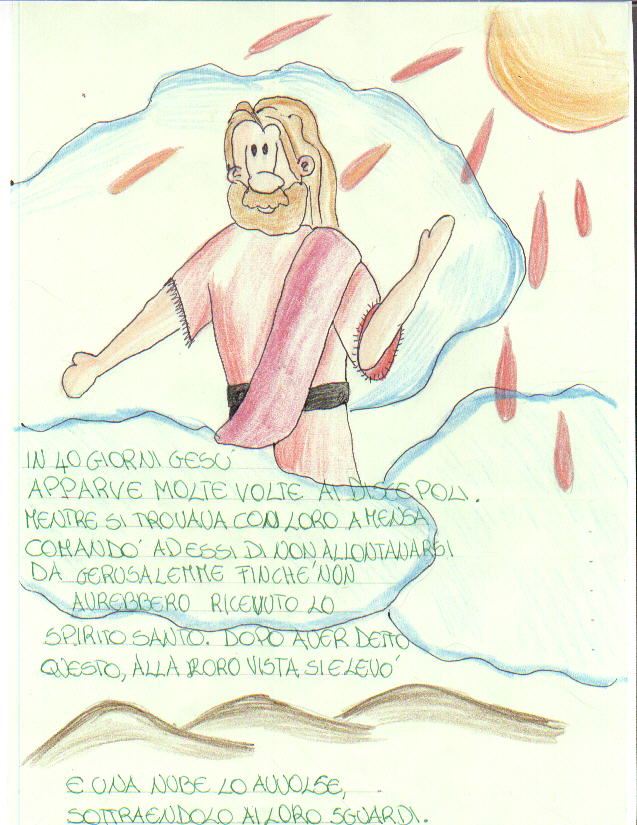 IN 40 GIORNI GESU'
APPARVE MOLTE VOLTE AI DISCEPOLI.
MENTRE SI TROVAVA CON LORO A MENSA
COMANDO' AD ESSI DI NON ALLONTANARSI
DA GERUSALEMME FINCHE' NON
AVREBBERO RICEVUTO LO
SPIRITO SANTO. DOPO AVER DETTO
QUESTO, ALLA LORO VISTA, SI ELEVO'
E UNA NUBE LO AVVOLSE,
SOTTRAENDOLO AI LORO SGUARDI.